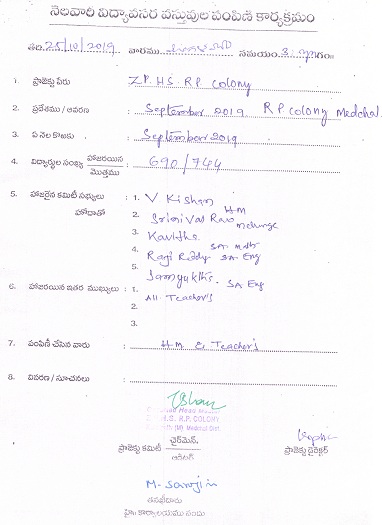 నెలవారీ విద్యావసర వస్తువుల పంపిణీ కార్యక్రమం
తేది. 25/10/2019 వారము సమయం 3:
1. ప్రాజెక్టు పేరు Z.P.HS. R.P. Colony
2. ప్రదేశము / ఆవరణ : September 2019. R P colony Medchal
3. ఏ నెల కొఱకు : September 2019
4. విద్యార్థుల సంఖ్య హాజరయిన / మొత్తము : 690/744
5. హాజరైన కమిటీ సభ్యులు : 1. V Kishan HM
హోదాతో 2. Srinivas Rao
3. Kavitha SA. Math
4. Raji Reddy SA. Eng
5. Samyuktha. SA Eng
6. హాజరయిన ఇతర ముఖ్యులు : 1. All Teacher's
2.
3.
7. పంపిణీ చేసిన వారు : H.M. & Teacher's
8. వివరణ / సూచనలు :
Head Master
H.S. R.P. COLONY
(M) Medchal Dist.
ప్రాజెక్టు కమిటీ చైర్మెన్. ప్రాజెక్టు డైరెక్టర్
M. Sarojin